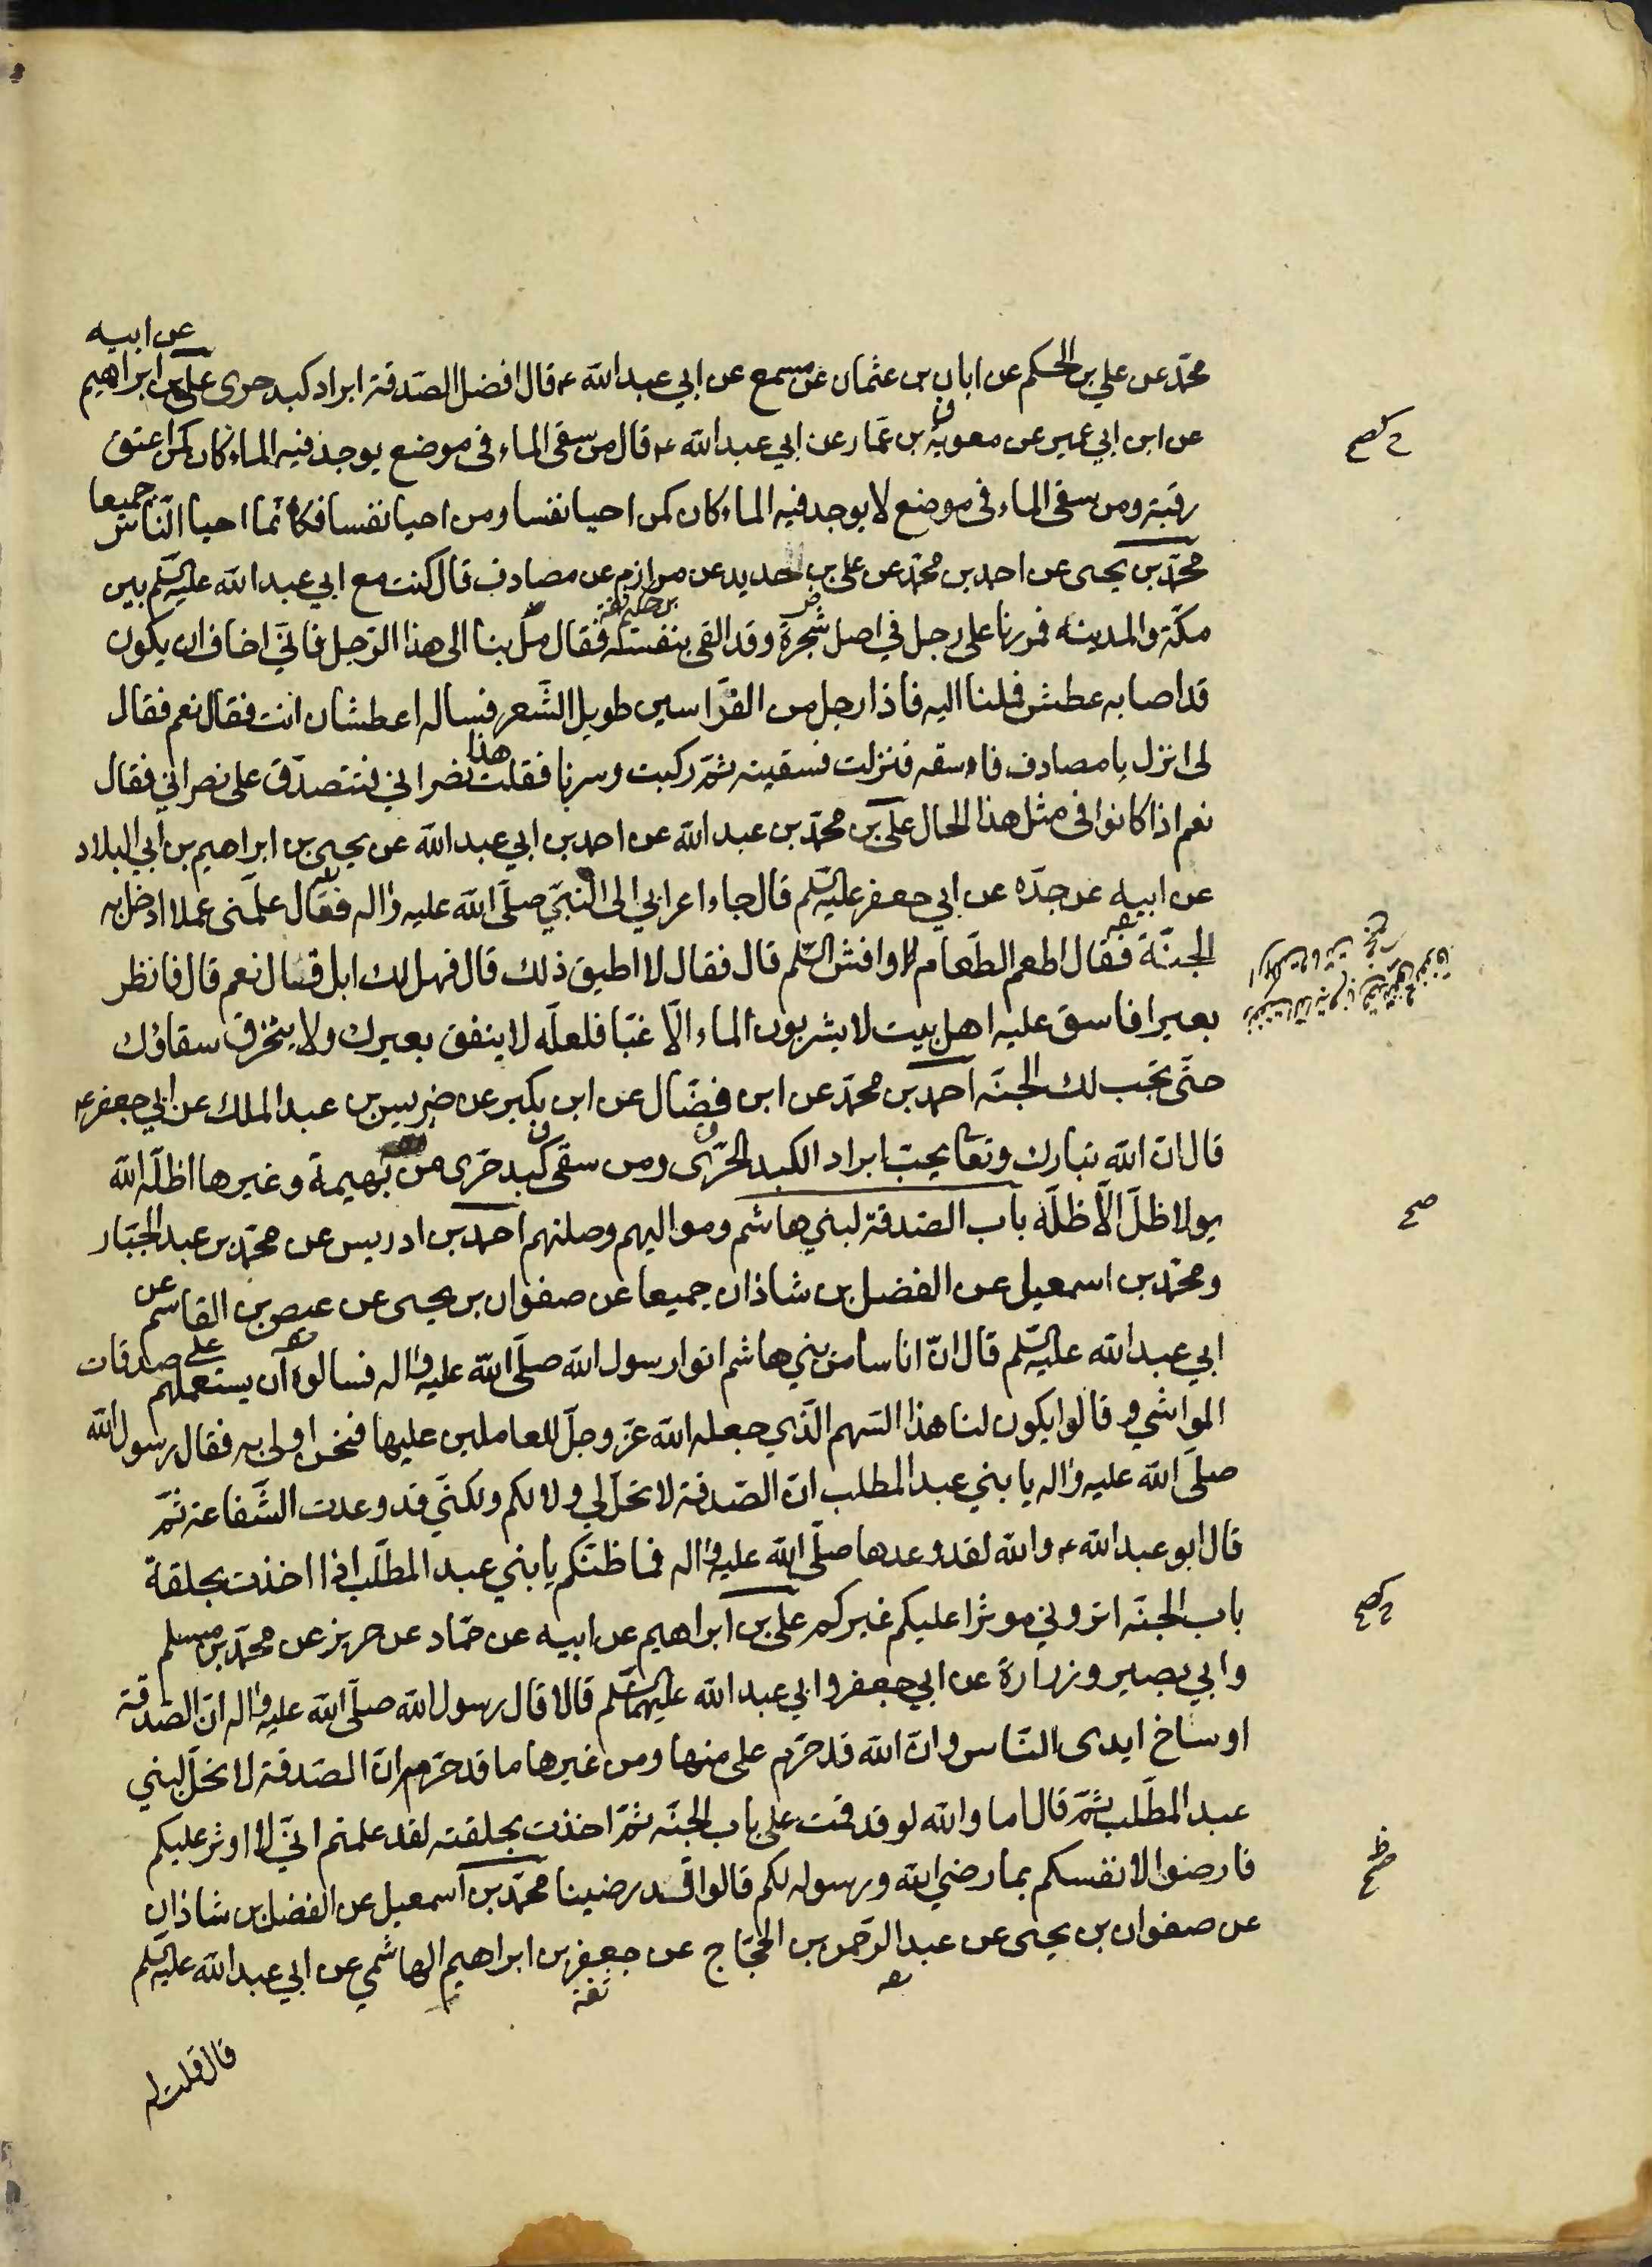 محمّد عن علي بن الحكم عن ابان بن عثمان عن مسمع عن ابي عبد الله ع قال افضل الصّدقة ابراد كبد حرى علي بن ابراهيم عن ابيه
عن ابن ابي عمير عن معوية بن عمّار عن ابي عبد الله ع قال من سقى الماء في موضع يوجد فيه الماء كان كمن اعتق
رقبة ومن سقى الماء في موضع لا يوجد فيه الماء كان كمن احيا نفسا ومن احيا نفسا فكانّما احيا النّاس جميعا
محمّد بن يحيى عن احمد بن محمّد عن علي بن الحديد عن مرازم عن مصادف قال كنت مع ابي عبد الله عليه السّلم بين
بن حكيم ثقة
مكّة والمدينة فمررنا على رجل في اصل شجرة وقد القى بنفسه فقال مل بنا الى هذا الرّجل فانّي اخاف ان يكون
قد اصابه عطش فملنا اليه فاذا رجل من الفرّاسين طويل الشّعر فساله اعطشان انت فقال نعم فقال
لي انزل يا مصادف فاسقه فنزلت فسقيته ثمّ ركبت وسرنا فقلت هذا نصراني فنتصدّق على نصراني فقال
نعم اذا كانوا في مثل هذا الحال علي بن محمّد بن عبد الله عن احمد بن ابي عبد الله عن يحيى بن ابراهيم بن ابي البلاد
عن ابيه عن جدّه عن ابي جعفر عليه السّلم قال جاء اعرابي الى النّبيّ صلّى الله عليه واله فقال علّمني عملا ادخل به
الجنّة فقال اطعم الطّعام وافش السّلم قال فقال لا اطيق ذلك قال فهل لك ابل قال نعم قال فانظر
بعيرا فاسق عليه اهل بيت لا يشربون الماء الّا غبّا فلعلّه لا ينفق بعيرك ولا يتخرق سقاؤك
حتّى تجب لك الجنّه احمد بن محمّد عن ابن فضّال عن ابن بكير عن ضريس بن عبد الملك عن ابي جعفر ع
قال انّ الله تبارك وتعا يحبّ ابراد الكبد الحرّى ومن سقى كبد حرّى من بهيمة وغيرها اظلّه الله
يوم لا ظلّ الّا ظلّه باب الصّدقة لبني هاشم ومواليهم وصلتهم احمد بن ادريس عن محمّد بن عبد الجبّار
ومحمّد بن اسمعيل عن الفضل بن شاذان جميعا عن صفوان بن يحيى عن عيص بن القاسم عن
ابي عبد الله عليه السّلم قال انّ اناسا من بني هاشم اتوا رسول الله صلّى الله عليه واله فسالوه ان يستعملهم على صدقات
المواشي وقالوا يكون لنا هذا السّهم الّذي جعله الله عزّ وجلّ للعاملين عليها فنحن اولى به فقال رسول الله
صلّى الله عليه واله يا بني عبد المطلب انّ الصّدقة لا تحلّ لي ولا لكم ولكنّي قد وعدت الشّفاعة ثمّ
قال ابو عبد الله ع والله لقد وعدها صلّى الله عليه واله فما ظنّكم يا بني عبد المطّلب اذا اخذت بحلقة
باب الجنّه اتروني موثرا عليكم غيركم علي بن ابراهيم عن ابيه عن حمّاد عن حريز عن محمّد بن مسلم
وابي بصير وزرارة عن ابي جعفر وابي عبد الله عليهما السّلم قالا قال رسول الله صلّى الله عليه واله انّ الصّدقة
اوساخ ايدى النّاس وانّ الله قد حرّم على منها ومن غيرها ما قد حرّمه وانّ الصّدقة لا تحلّ لبني
عبد المطّلب ثمّ قال اما والله لو قد قمت على باب الجنّه ثمّ اخذت بحلقته لقد علمتم انّي لا اوثر عليكم
فارضوا لانفسكم بما رضي الله ورسوله لكم قالوا قد رضينا محمّد بن اسمعيل عن الفضل بن شاذان
عن صفوان بن يحيى عن عبد الرّحمن بن الحجّاج عن جعفر بن ابراهيم الهاشمي عن ابي عبد الله عليه السّلم
ثقة
قال قلت له